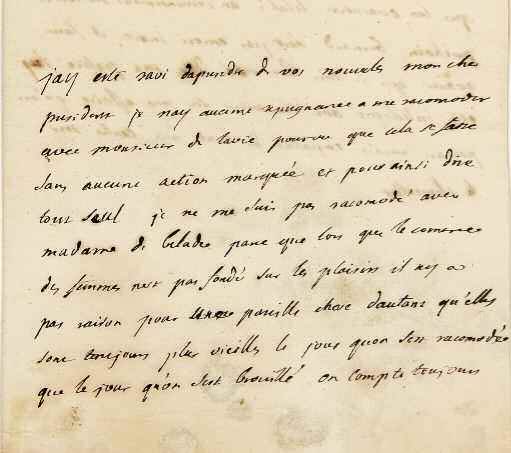 jay esté ravi daprendre de vos nouvelles mon cher
president je nay aucune repugnance a me racomoder
avec monsieur de lavie pourvu que cela se fasse
sans aucune action marquée et pour ainsi dire
tout seul je ne me suis pas racomodé avec
madame de parce que lors que le comerce
des femmes nest pas fondé sur les plaisirs il ny a
pas raison pour une pareille chose dautant qu'elles
sont toujours plus vieilles le jour quon sest racomodée
que le jour qu'on sest brouillé on compte toujours